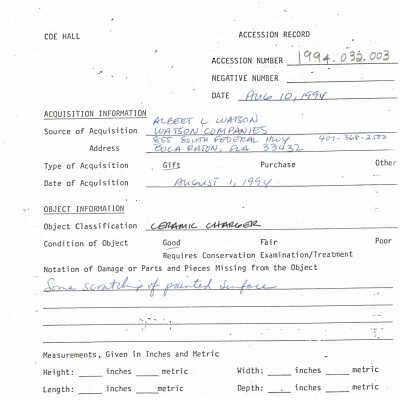 COE HALL
ACCESSION RECORD
ACCESSION NUMBER 1994.032.003
NEGATIVE NUMBER
DATE Aug 10, 1994
ACQUISITION INFORMATION
ALBERT L WATSON
Source of Acquisition WATSON COMPANIES
Address 855 SOUTH FEDERAL HWY 407-368-2522
BOCA RATON, FLA 33432
Type of Acquisition Gift Purchase Other
Date of Acquisition August 1, 1994
OBJECT INFORMATION
Object Classification CERAMIC CHARGER
Condition of Object Good Fair Poor
Requires Conservation Examination/Treatment
Notation of Damage or Parts and Pieces Missing from the Object
Some scratching of painted surface
Measurements, Given in Inches and Metric
Height: _____ inches _____ metric Width: _____ inches _____ metric
Length: _____ inches _____ metric Depth: _____ inches _____ metric